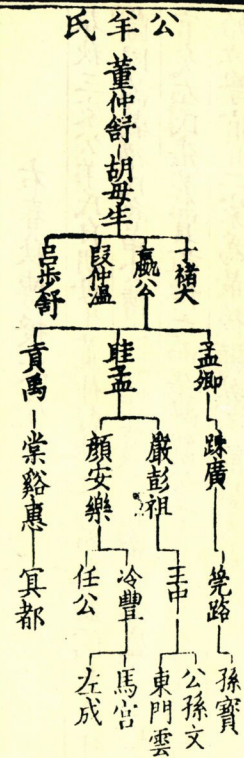 公羊氏
董仲舒
胡母生
褚大
嬴公
段仲溫
吕步舒
孟卿
眭孟
貢禹
疎廣
嚴彭祖
顏安樂
棠谿惠
筦路
王中
冷豐
任公
冥都
孫寶
公孫文
東門雲
馬宮
左成